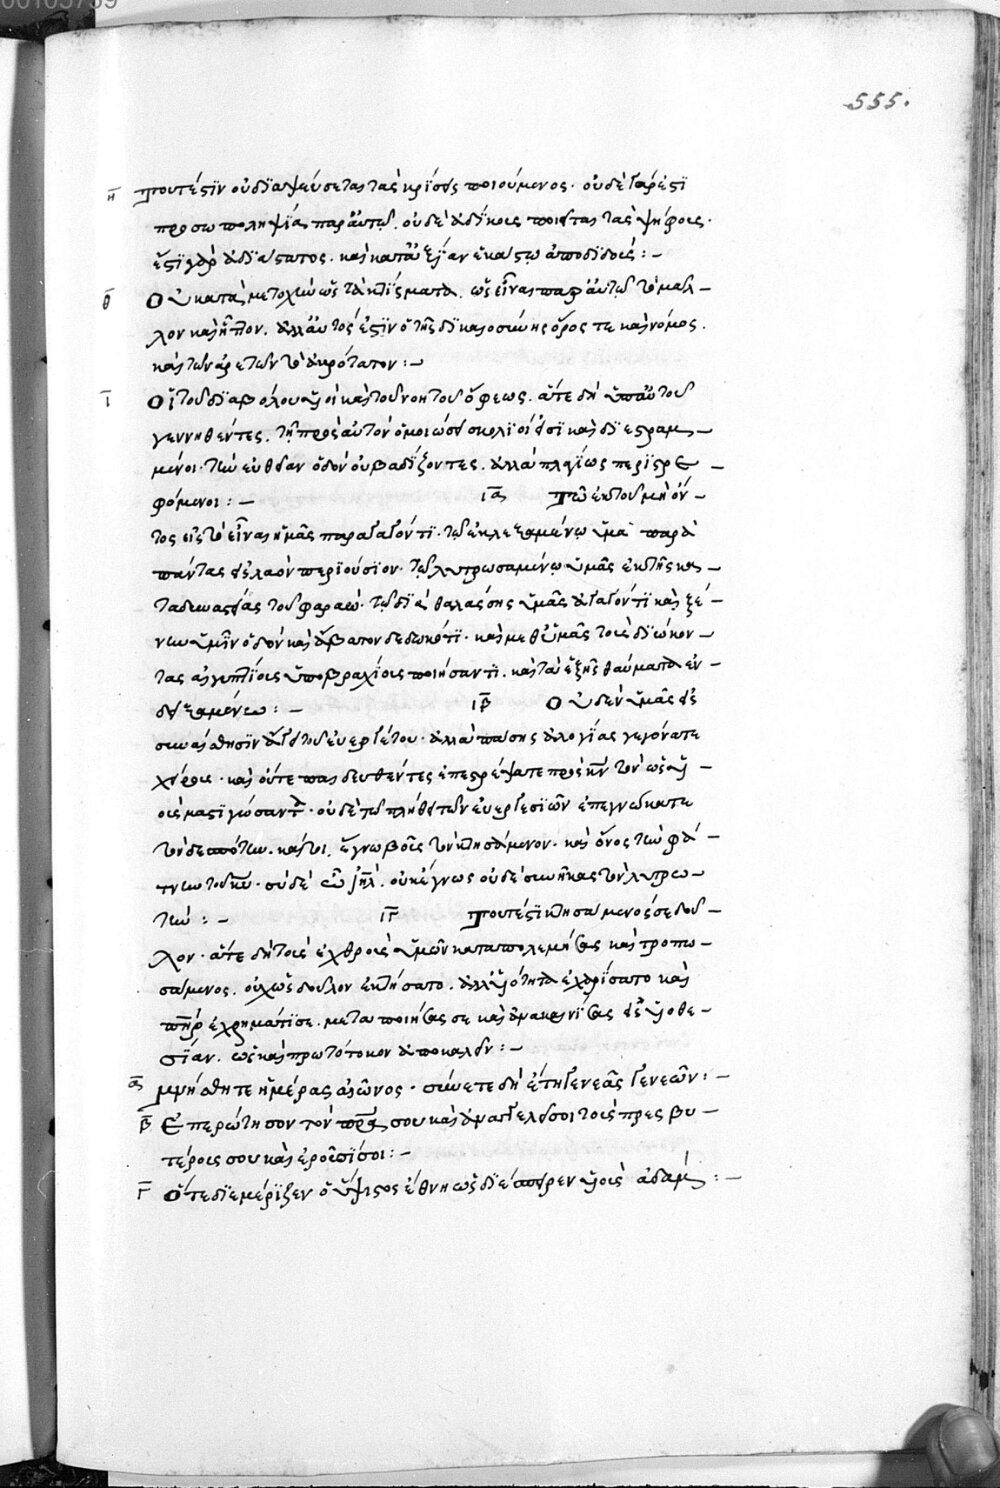 00105759
555.
η τουτέστιν οὐ διαψεύσεται τὰς κρίσεις ποιούμενος. οὐδὲ γάρ ἐστι
προσωποληψία παρ' αὐτῷ. οὐδὲ ἀδίκοις ποιεῖται τὰς ψήφοις.
ἔστι γὰρ ἀδιάστατος. καὶ κατ' ἀξίαν ἑκάστῳ ἀποδίδοις : –
θ Οὐ κατὰ μετοχὴν ὡς τὰ κτίσματα. ὡς εἶναι παρ' αὐτῷ τὸ μᾶλ –
λον καὶ ἧττον. ἀλλ' αὐτός ἐστιν ὁ τῆς δικαιοσύνης ὅρος τε καὶ νόμος.
καὶ τῶν ἀρετῶν τὸ ἀκρότατον : –
ι Οἱ τοῦ διαβόλου υἱοὶ καὶ τοῦ νοητοῦ ὄφεως. ἅτε δὴ ὑπ' αὐτοῦ
γεννηθέντες. τῇ πρὸς αὐτὸν ὁμοιώσει σκολιοί εἰσι καὶ διεστραμ –
μένοι. τὴν εὐθεῖαν ὁδὸν οὐ βαδίζοντες. ἀλλὰ πλαγίως περιστρε –
φόμενοι : – ια τῷ ἐκ τοῦ μὴ ὄν –
τος εἰς τὸ εἶναι ἡμᾶς παραγαγόντι. τῷ ἐκλεξαμένῳ ὑμᾶς παρὰ
πάντας εἰς λαὸν περιούσιον. τῷ λυτρωσαμένῳ ὑμᾶς ἐκ τῆς κα –
ταδυναστείας τοῦ φαραώ. τῷ διὰ θαλάσσης ὑμᾶς ἀγαγόντι καὶ ξέ –
νην ὑμῖν ὁδὸν καὶ ἄβατον δεδωκότι. καὶ μεθ' ὑμᾶς τοὺς διώκον –
τας αἰγυπτίοις ὑποβραχίοις ποιήσαντι. καὶ τὰ ἑξῆς θαύματα ἐν –
δειξαμένῳ : – ιβ Οὐδὲν ὑμᾶς εἰς
συναίσθησιν ἄγει τοῦ εὐεργέτου. ἀλλὰ πάσης ἀλογίας γεγόνατε
χείροις. καὶ οὔτε παιδευθέντες ἐπεστρέψατε πρὸς κν τὸν ὡς υἱ –
οὺς μαστιγώσαντα. οὐδὲ τῷ πλήθει τῶν εὐεργεσιῶν ἐπεγνώκατε
τὸν δεσπότην. καίτοι, ἔγνω βοῦς τὸν κτησάμενον. καὶ ὄνος τὴν φά –
τνην τοῦ κυ. σὺ δὲ ὦ ιηλ. οὐκ ἔγνως οὐδὲ συνῆκας τὸν λυτρω –
τήν : – ιγ τουτέστι κτησάμενος σε δοῦ –
λον. ἅτε δὴ τοὺς ἐχθροὺς ὑμῶν καταπολεμήσας καὶ τροπω –
σάμενος. οὐχ ὡς δοῦλον ἐκτήσατο. ἀλλ' υἱότητα ἐχαρίσατο καὶ
πηρ ἐχρημάτισε. μεταποιήσας σε καὶ ἀνακαινίσας εἰς υἱοθε –
σίαν. ὡς καὶ πρωτότοκον ἀποκαλεῖν : –
α μνήσθητε ἡμέρας αἰῶνος. σύνετε δὴ ἔτη γενεᾶς γενεῶν : –
β Ἐπερώτησον τὸν πρα σου καὶ ἀναγγελεῖ σοι τοὺς πρεσβυ –
τέροις σου καὶ ἐροῦσί σοι : –
γ Ὅτε διεμέριζεν ὁ ὕψιστος ἔθνη ὡς διέσπειρεν υἱοὺς ἀδάμ : –